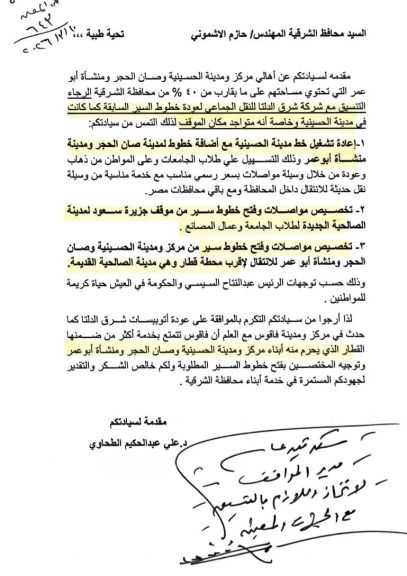 السيد محافظ الشرقية المهندس/ حازم الاشموني تحية طيبة ،،،
مقدمه لسيادتكم عن أهالي مركز ومدينة الحسينية وصان الحجر ومنشأة أبو
عمر التي تحتوي مساحتهم على ما يقارب من ٤٠ % من محافظة الشرقية الرجاء
التنسيق مع شركة شرق الدلتا للنقل الجماعي لعودة خطوط السير السابقة كما كانت
في مدينة الحسينية وخاصة أنه متواجد مكان الموقف لذلك التمس من سيادتكم:
١-إعادة تشغيل خط مدينة الحسينية مع أضافة خطوط لمدينة صان الحجر ومدينة
منشأة أبوعمر وذلك التسهيل علي طلاب الجامعات وعلى المواطن من ذهاب
وعودة من خلال وسيلة مواصلات بسعر رسمي مناسب مع خدمة مناسبة من وسيلة
نقل حديثة للانتقال داخل المحافظة ومع باقي محافظات مصر.
٢- تخصيص مواصلات وفتح خطوط سير من موقف جزيرة سعود لمدينة
الصالحية الجديدة لطلاب الجامعة وعمال المصانع .
٣- تخصيص مواصلات وفتح خطوط سير من مركز ومدينة الحسينية وصان
الحجر ومنشأة أبو عمر للانتقال لأقرب محطة قطار وهي مدينة الصالحية القديمة.
وذلك حسب توجهات الرئيس عبدالفتاح السيسي والحكومة في العيش حياة كريمة
للمواطنين .
لذا أرجوا من سيادتكم التكرم بالموافقة على عودة أتوبيسات شرق الدلتا كما
حدث في مركز ومدينة فاقوس مع العلم أن فاقوس تتمتع بخدمة أكثر من ضمنها
القطار الذي يحرم منه أبناء مركز ومدينة الحسينية وصان الحجر ومنشأة أبوعمر
وتوجيه المختصين بفتح خطوط السير المطلوبة ولكم خالص الشكر والتقدير
لجهودكم المستمرة في خدمة أبناء محافظة الشرقية .
مقدمة لسيادتكم
د.علي عبدالحكيم الطحاوي
مدير المواقف
لاتخاذ اللازم بالتنسيق
مع الجهات المعنية